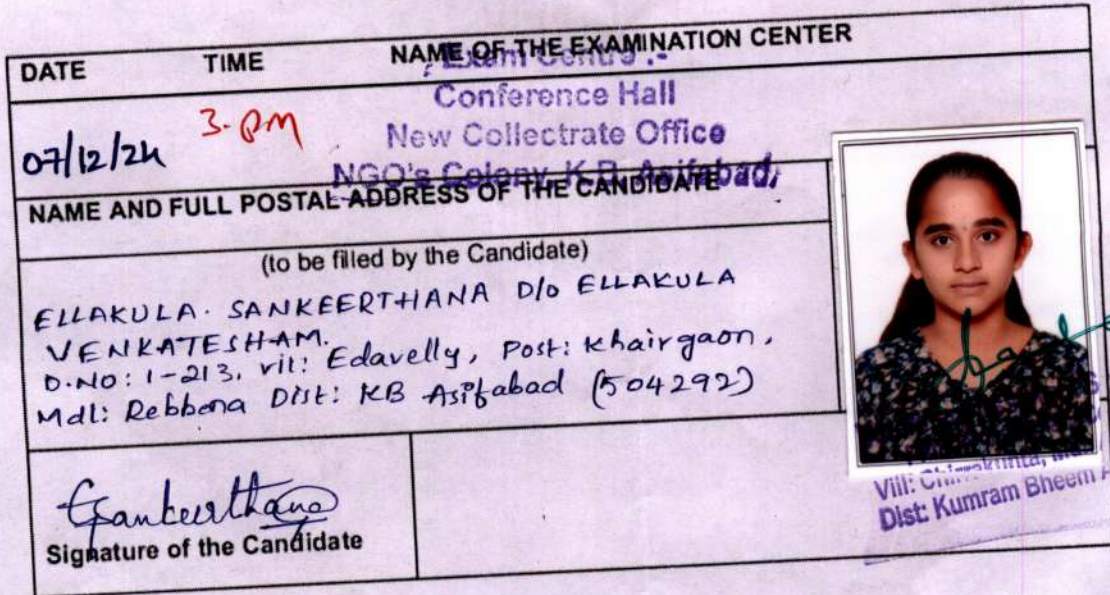 DATE TIME NAME OF THE EXAMINATION CENTER
Exam Centre :-
Conference Hall
New Collectrate Office
07/12/24 3. PM
NGO's Colony, K.B. Asifabad,
NAME AND FULL POSTAL ADDRESS OF THE CANDIDATE
(to be filled by the Candidate)
ELLAKULA. SANKEERTHANA D/o ELLAKULA
VENKATESHAM.
D.NO: 1-213, vil: Edavelly, Post: Khairgaon,
Mdl: Rebbena Dist: KB Asifabad (504292)
Vill:
Dist: Kumram Bheem A
Signature of the Candidate